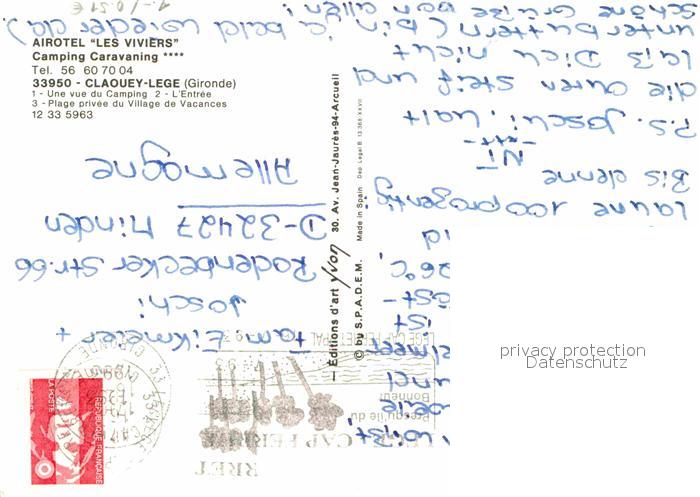 AIROTEL "LES VIVIERS"
Camping Caravaning ****
Tel. 56 60 70 04
33950 - CLAOUEY-LEGE (Gironde)
1 - Une vue du Camping 2 - L'Entrée
3 - Plage privée du Village de Vacances
12 33 5963
— Éditions d'art yvon 30. Av. Jean-Jaurès-94-Arcueil
© by S.P.A.D.E.M. Made in Spain Dep. Legal B. 13.368-XXVII
Fam. Eikmeier +
Joschi
Rodenbecker Str. 66
D-32427 Minden
Allemagne
ist
26°C,
Laune 100prozentig
Bis denne
P.S. Joschi, halt
die Ohren steif und
laß Dich nicht
unterbuttern (bin
ja bald wieder da)
Schöne Grüße von allen!
LEGE CAP FERRET
Presqu'île du
Bonheur
RÉPUBLIQUE FRANÇAISE
LA POSTE
privacy protection
Datenschutz